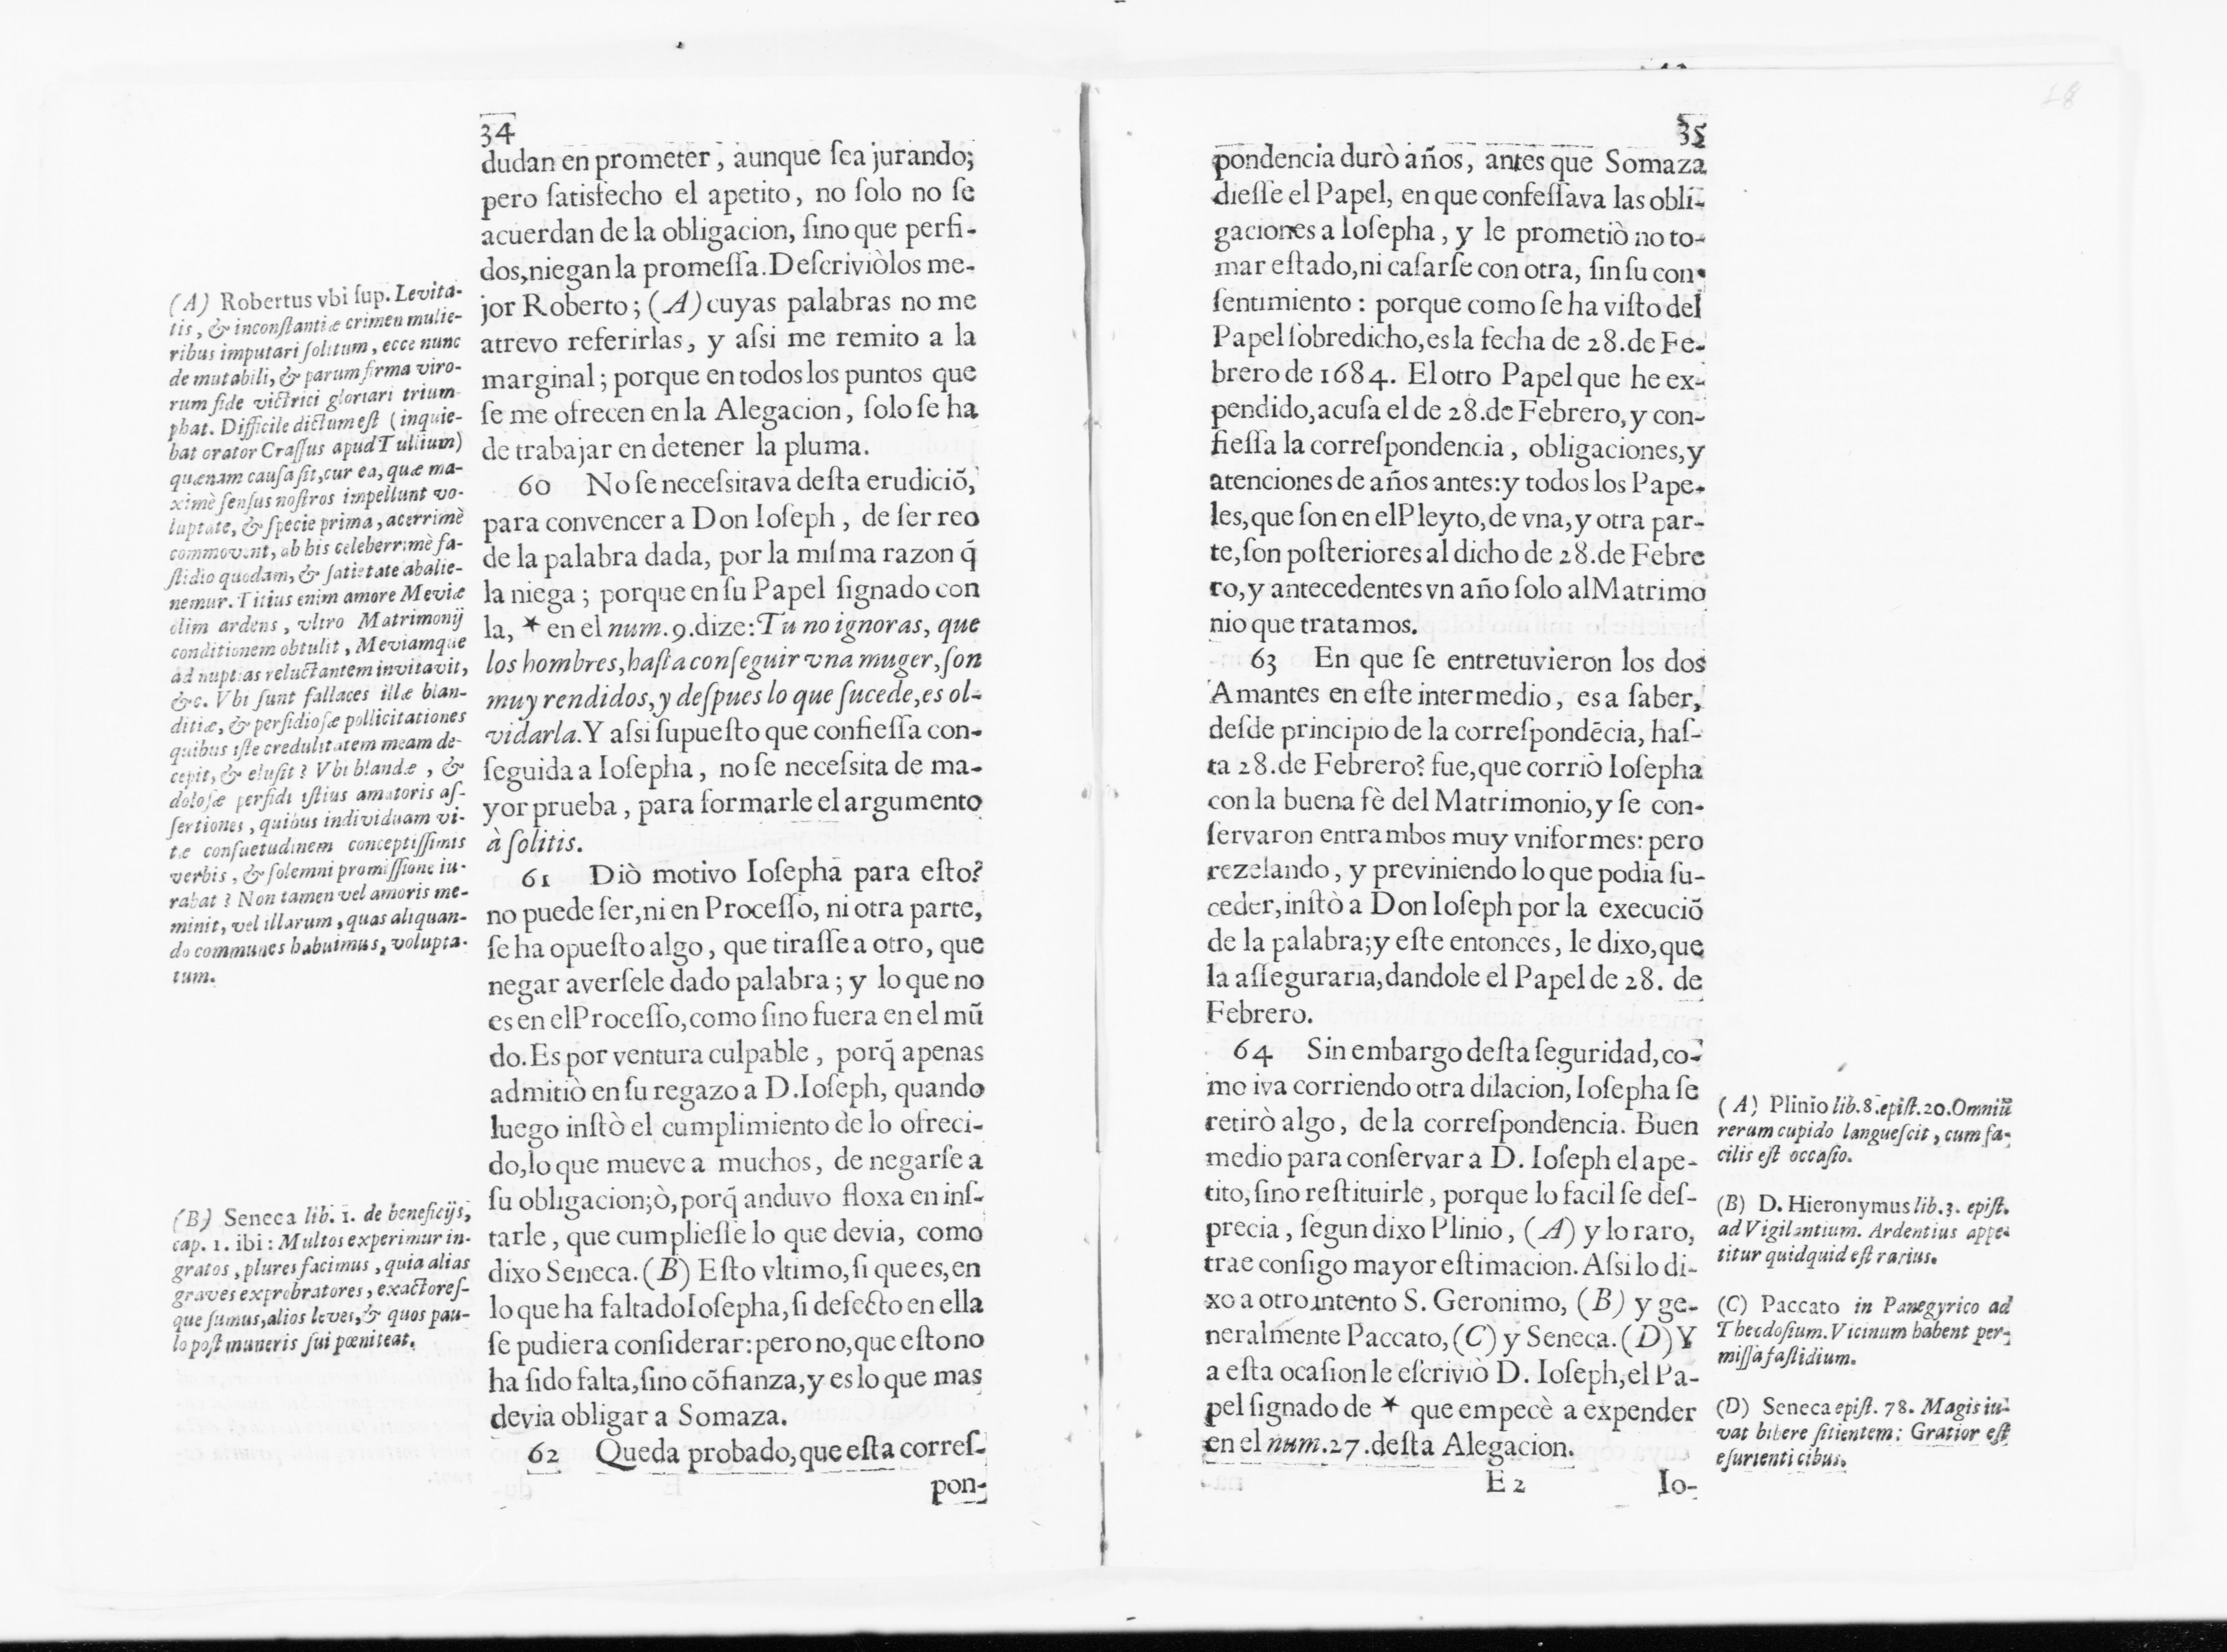 34
dudan en prometer, aunque ſea jurando;
pero ſatisfecho el apetito, no ſolo no ſe
acuerdan de la obligacion, ſino que perfi-
dos, niegan la promeſſa. Deſcriviòlos me-
jor Roberto; (A) cuyas palabras no me
atrevo referirlas, y aſsi me remito a la
marginal; porque en todos los puntos que
ſe me ofrecen en la Alegacion, ſolo ſe ha
de trabajar en detener la pluma.
60 No ſe neceſsitava deſta erudiciõ,
para convencer a Don Ioſeph, de ſer reo
de la palabra dada, por la miſma razon q̃
la niega; porque en ſu Papel ſignado con
la, * en el num. 9. dize: Tu no ignoras, que
los hombres, haſta conſeguir vna muger, ſon
muy rendidos, y deſpues lo que ſucede, es ol-
vidarla. Y aſsi ſupueſto que confieſſa con-
ſeguida a Ioſepha, no ſe neceſsita de ma-
yor prueba, para formarle el argumento
à ſolitis.
61 Diò motivo Ioſepha para eſto?
no puede ſer, ni en Proceſſo, ni otra parte,
ſe ha opueſto algo, que tiraſſe a otro, que
negar averſele dado palabra; y lo que no
es en el Proceſſo, como ſino fuera en el mũ
do. Es por ventura culpable, porq̃ apenas
admitiò en ſu regazo a D. Ioſeph, quando
luego inſtò el cumplimiento de lo ofreci-
do, lo que mueve a muchos, de negarſe a
ſu obligacion; ò, porq̃ anduvo floxa en inſ-
tarle, que cumplieſſe lo que devia, como
dixo Seneca. (B) Eſto vltimo, ſi que es, en
lo que ha faltado Ioſepha, ſi defecto en ella
ſe pudiera conſiderar: pero no, que eſto no
ha ſido falta, ſino cõfianza, y es lo que mas
devia obligar a Somaza.
62 Queda probado, que eſta correſ-
pon-
(A) Robertus vbi ſup. Levita-
tis, & inconſtantiæ crimen mulie-
ribus imputari ſolitum, ecce nunc
de mutabili, & parum firma viro-
rum fide victrici gloriari trium-
phat. Difficile dictum eſt (inquie-
bat orator Craſſus apud Tullium)
quænam cauſa ſit, cur ea, quæ ma-
ximè ſenſus noſtros impellunt vo-
luptate, & ſpecie prima, acerrimè
commovent, ab his celeberrimè fa-
ſtidio quodam, & ſatietate abalie-
nemur. Titius enim amore Meviæ
olim ardens, vltro Matrimonij
conditionem obtulit, Meviamque
ad nuptias reluctantem invitavit,
&c. Vbi ſunt fallaces illæ blan-
ditiæ, & perfidioſæ pollicitationes
quibus iſte credulitatem meam de-
cepit, & eluſit? Vbi blandæ, &
doloſæ perfidi iſtius amatoris aſ-
ſertiones, quibus individuam vi-
tæ conſuetudinem conceptiſſimis
verbis, & ſolemni promiſſione iu-
rabat? Non tamen vel amoris me-
minit, vel illarum, quas aliquan-
do communes habuimus, volupta-
tum.
(B) Seneca lib. 1. de beneficijs,
cap. 1. ibi: Multos experimur in-
gratos, plures facimus, quia alias
graves exprobratores, exactoreſ-
que ſumus, alios leves, & quos pau-
lo poſt muneris ſui pœniteat.
35
pondencia durò años, antes que Somaza
dieſſe el Papel, en que confeſſava las obli-
gaciones a Ioſepha, y le prometiò no to-
mar eſtado, ni caſarſe con otra, ſin ſu con-
ſentimiento: porque como ſe ha viſto del
Papel ſobredicho, es la fecha de 28. de Fe-
brero de 1684. El otro Papel que he ex-
pendido, acuſa el de 28. de Febrero, y con-
fieſſa la correſpondencia, obligaciones, y
atenciones de años antes: y todos los Pape-
les, que ſon en el Pleyto, de vna, y otra par-
te, ſon poſteriores al dicho de 28. de Febre
ro, y antecedentes vn año ſolo al Matrimo
nio que tratamos.
63 En que ſe entretuvieron los dos
Amantes en eſte intermedio, es a ſaber,
deſde principio de la correſpondẽcia, haſ-
ta 28. de Febrero? fue, que corriò Ioſepha
con la buena fè del Matrimonio, y ſe con-
ſervaron entrambos muy vniformes: pero
rezelando, y previniendo lo que podia ſu-
ceder, inſtò a Don Ioſeph por la execuciõ
de la palabra; y eſte entonces, le dixo, que
la aſſeguraria, dandole el Papel de 28. de
Febrero.
64 Sin embargo deſta ſeguridad, co-
mo iva corriendo otra dilacion, Ioſepha ſe
retirò algo, de la correſpondencia. Buen
medio para conſervar a D. Ioſeph el ape-
tito, ſino reſtituirle, porque lo facil ſe deſ-
precia, ſegun dixo Plinio, (A) y lo raro,
trae conſigo mayor eſtimacion. Aſsi lo di-
xo a otro intento S. Geronimo, (B) y ge-
neralmente Paccato, (C) y Seneca. (D) Y
a eſta ocaſion le eſcriviò D. Ioſeph, el Pa-
pel ſignado de * que empecè a expender
en el num. 27. deſta Alegacion.
E 2 Io-
(A) Plinio lib. 8. epiſt. 20. Omniũ
rerum cupido langueſcit, cum fa-
cilis eſt occaſio.
(B) D. Hieronymus lib. 3. epiſt.
ad Vigilantium. Ardentius appe-
titur quidquid eſt rarius.
(C) Paccato in Panegyrico ad
Theodoſium. Vicinum habent per-
miſſa faſtidium.
(D) Seneca epiſt. 78. Magis iu-
vat bibere ſitientem: Gratior eſt
eſurienti cibus.